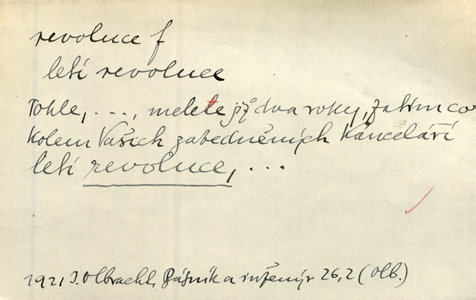 revoluce f
letí revoluce
Tohle, ..., melete již dva roky, zatím co
kolem Vašich zabedněných kanceláří
letí revoluce, ...
1921 I. Olbracht, Básník a inženýr 26,2 (Olb.)